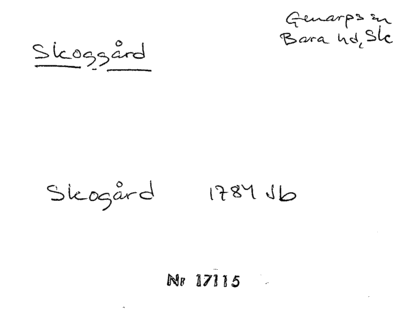 Genarps sn
Bara hd, Sk
Skoggård
Skogård 1784 Jb
Nr 17115